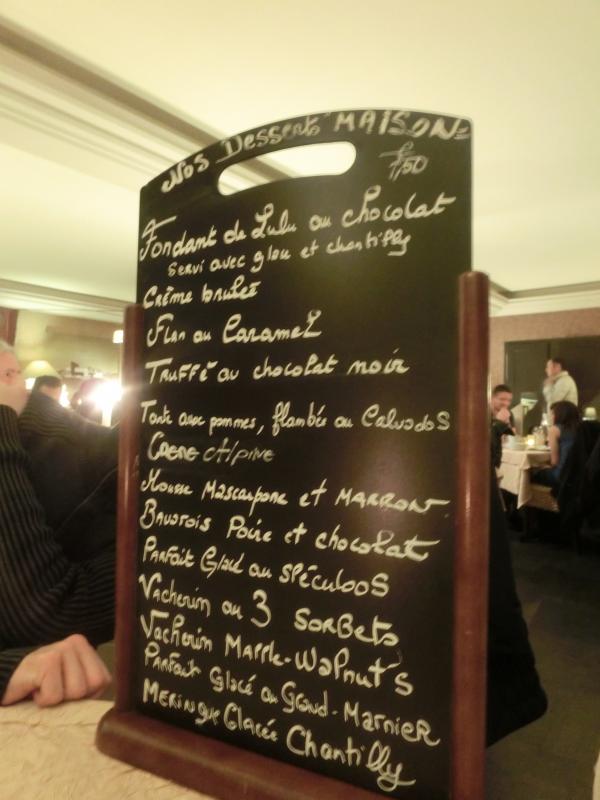 Nos Desserts "MAISON"
7,50
Fondant de Lulu au chocolat
Servi avec glace et chantilly
Crème brulée
Flan au Caramel
Truffé au chocolat noir
Tarte aux pommes, flambée au Calvados
Alpine
Mousse Mascarpone et MARRON
Bavarois Poire et chocolat
Parfait Glacé au spéculoos
Vacherin au 3 SORBETS
Vacherin Maple-Walnuts
Parfait Glacé au Grand-Marnier
Meringue Glacée Chantilly